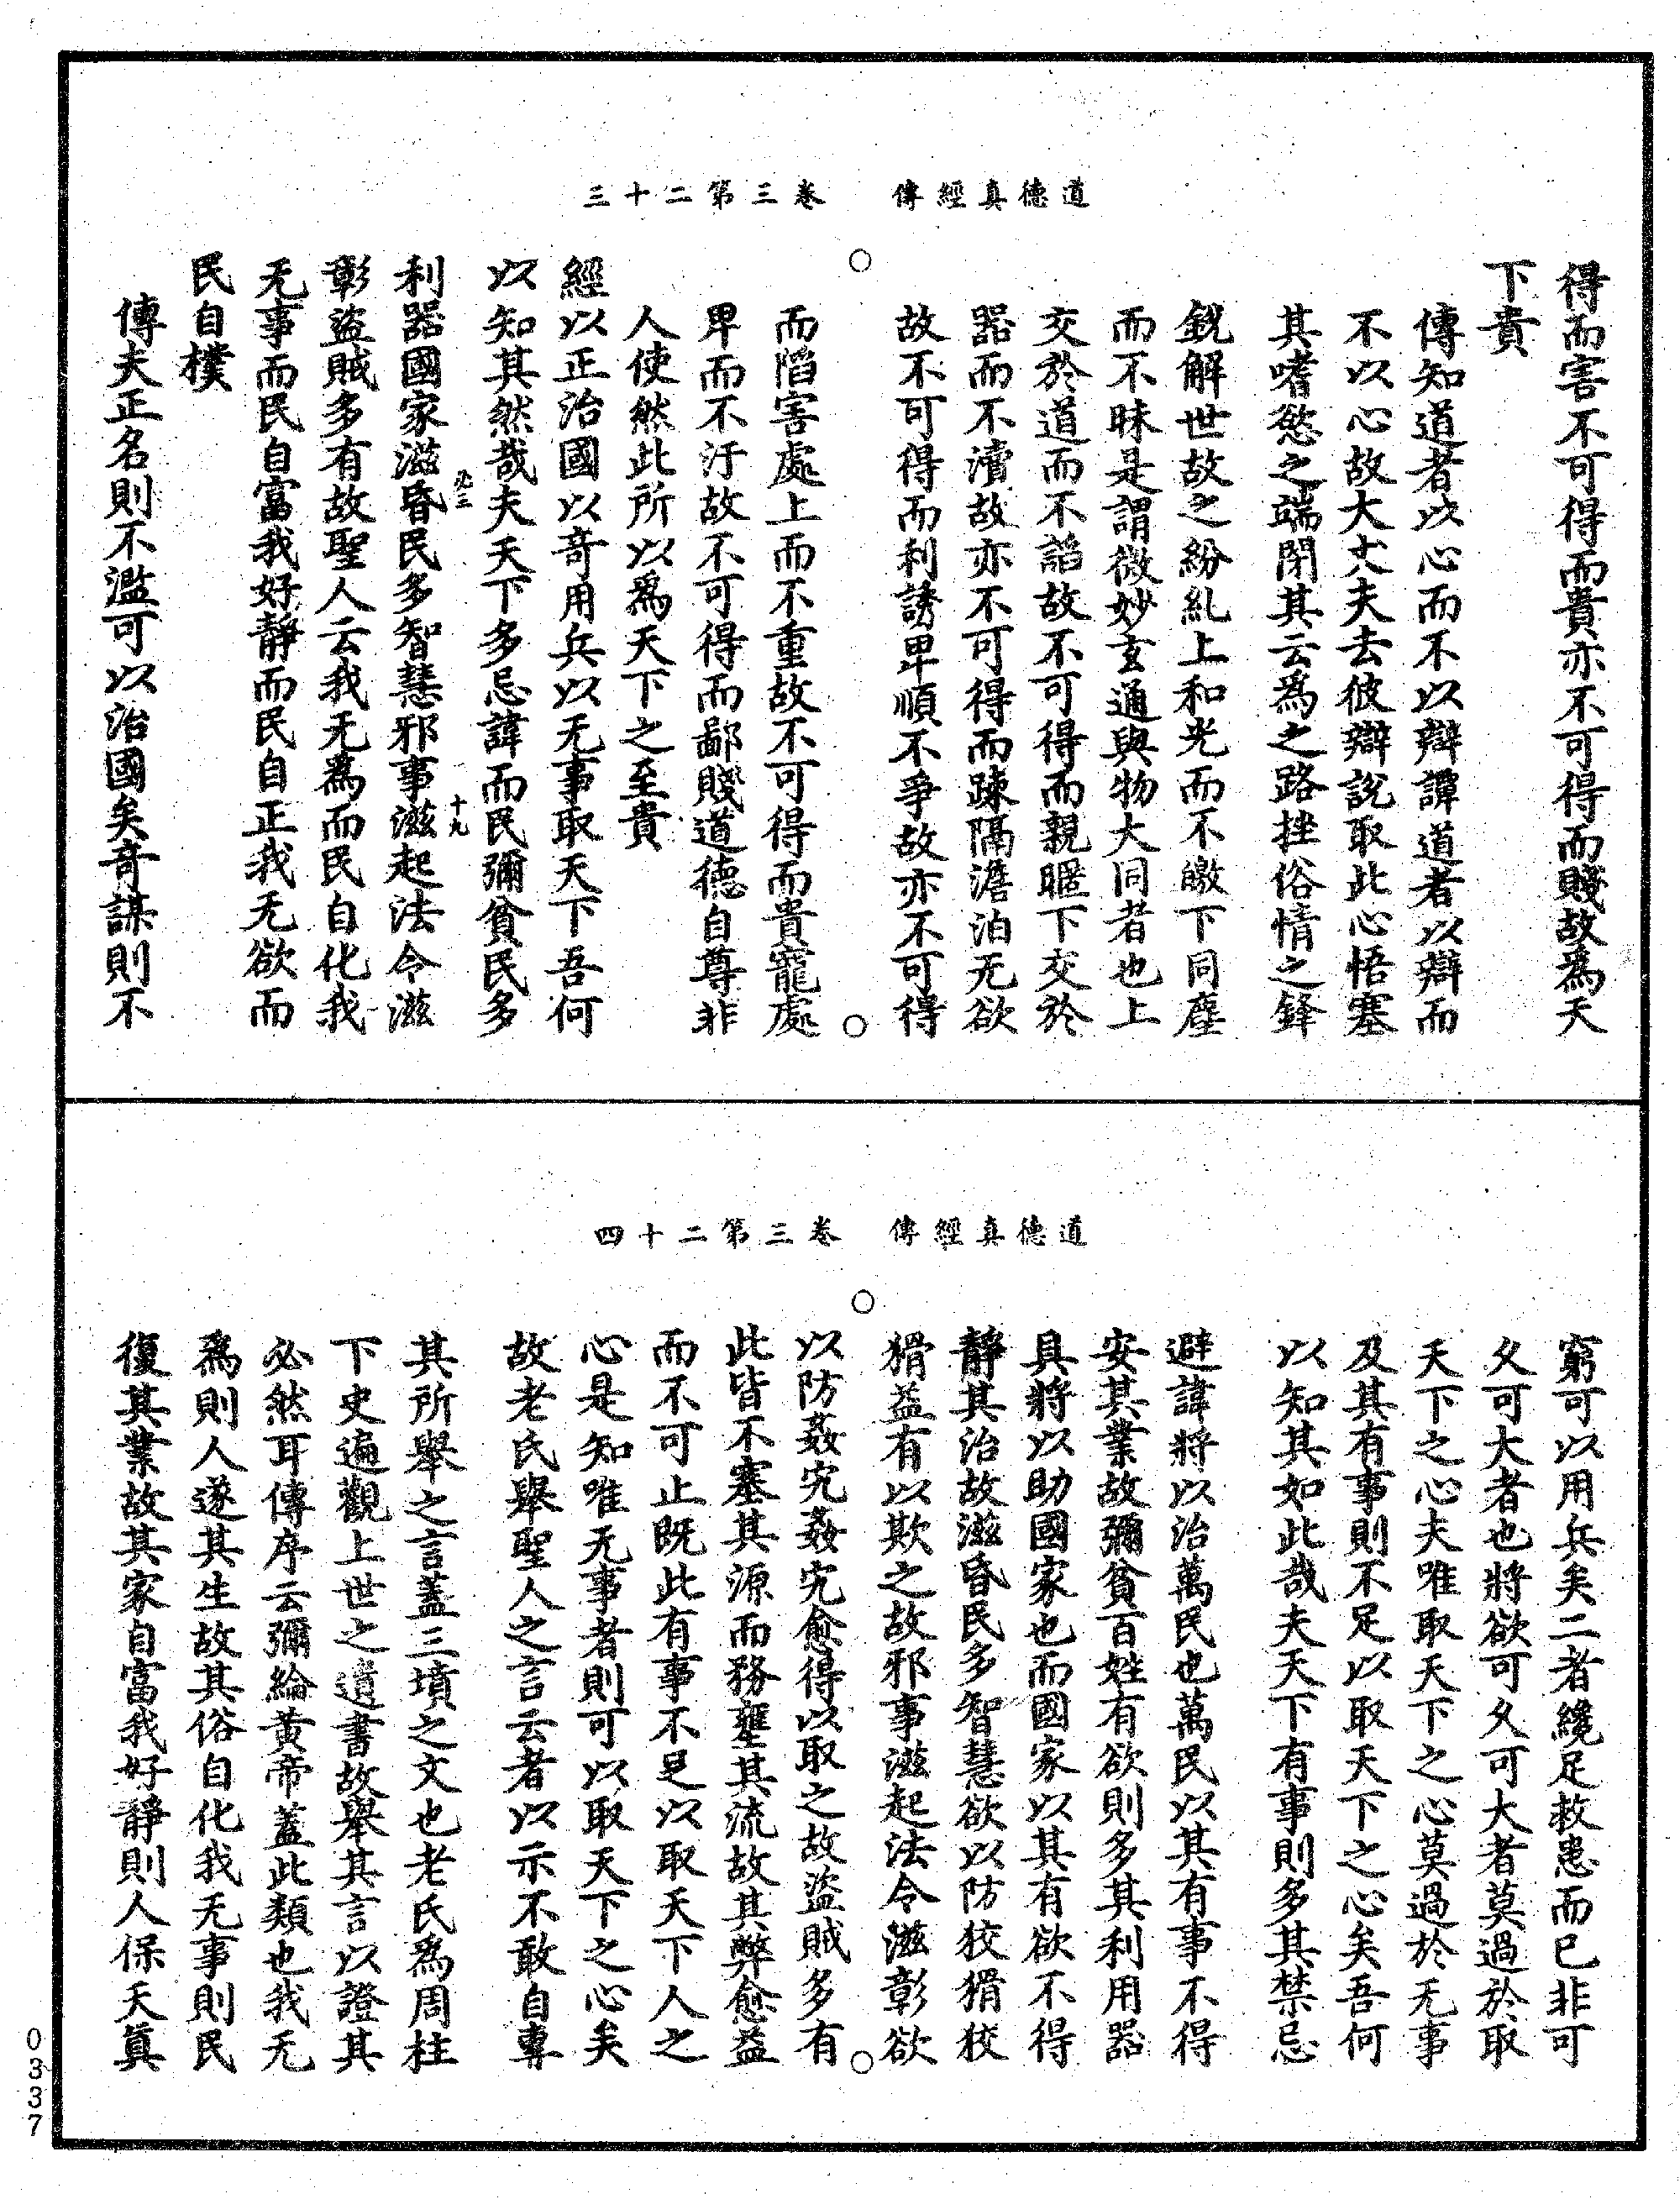 道德真經傳 卷三第二十三
得而害不可得而貴亦不可得而賤故為天
下貴
傳知道者以心而不以辯譚道者以辯而
不以心故大丈夫去彼辯說取此心悟塞
其嗜慾之端閉其云為之路挫俗情之鋒
銳解世故之紛糺上和光而不皦下同塵
而不昧是謂微妙玄通與物大同者也上
交於道而不諂故不可得而親暱下交於
器而不瀆故亦不可得而踈隔澹泊无欲
故不可得而利誘卑順不爭故亦不可得
而陷害處上而不重故不可得而貴寵處
卑而不汙故不可得而鄙賤道德自尊非
人使然此所以為天下之至貴
經以正治國以竒用兵以无事取天下吾何
以知其然哉夫天下多忌諱而民彌貧民多
必三 十九
利器國家滋昏民多智慧邪事滋起法令滋
彰盜賊多有故聖人云我无為而民自化我
无事而民自富我好靜而民自正我无欲而
民自樸
傳夫正名則不濫可以治國矣竒謀則不
道德真經傳 卷三第二十四
窮可以用兵矣二者纔足救患而已非可
久可大者也將欲可久可大者莫過於取
天下之心夫唯取天下之心莫過於无事
及其有事則不足以取天下之心矣吾何
以知其如此哉夫天下有事則多其禁忌
避諱將以治萬民也萬民以其有事不得
安其業故彌貧百姓有欲則多其利用器
具將以助國家也而國家以其有欲不得
靜其治故滋昏民多智慧欲以防狡猾狡
猾益有以欺之故邪事滋起法令滋彰欲
以防姦宄姦宄愈得以取之故盜賊多有
此皆不塞其源而務壅其流故其弊愈益
而不可止既此有事不足以取天下人之
心是知唯无事者則可以取天下之心矣
故老氏舉聖人之言云者以示不敢自專
其所舉之言蓋三墳之文也老氏為周柱
下史遍觀上世之遺書故舉其言以證其
必然耳傳序云彌綸黃帝蓋此類也我无
為則人遂其生故其俗自化我无事則民
復其業故其家自富我好靜則人保天真
0337